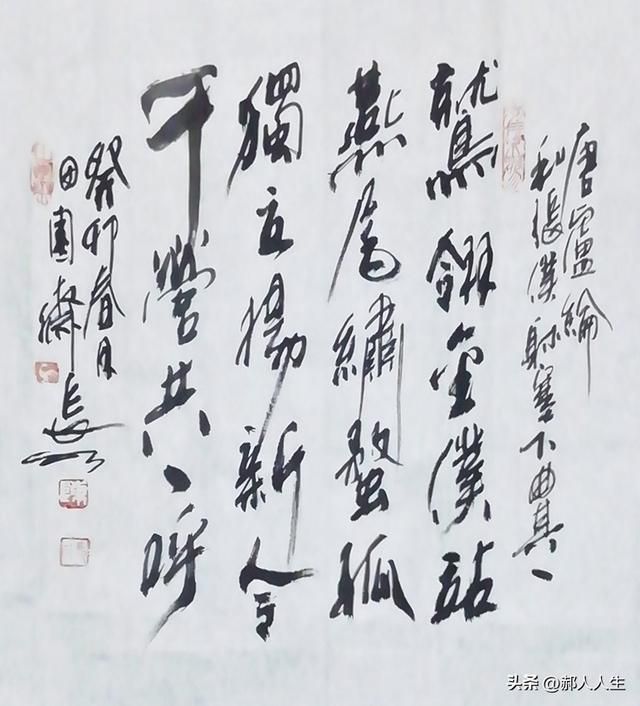 唐盧綸
和張僕射塞下曲其一
鷲翎金僕姑
燕尾繡蝥弧
獨立揚新令
千營共一呼
癸卯春月
田園齋
头条 @郝人人生